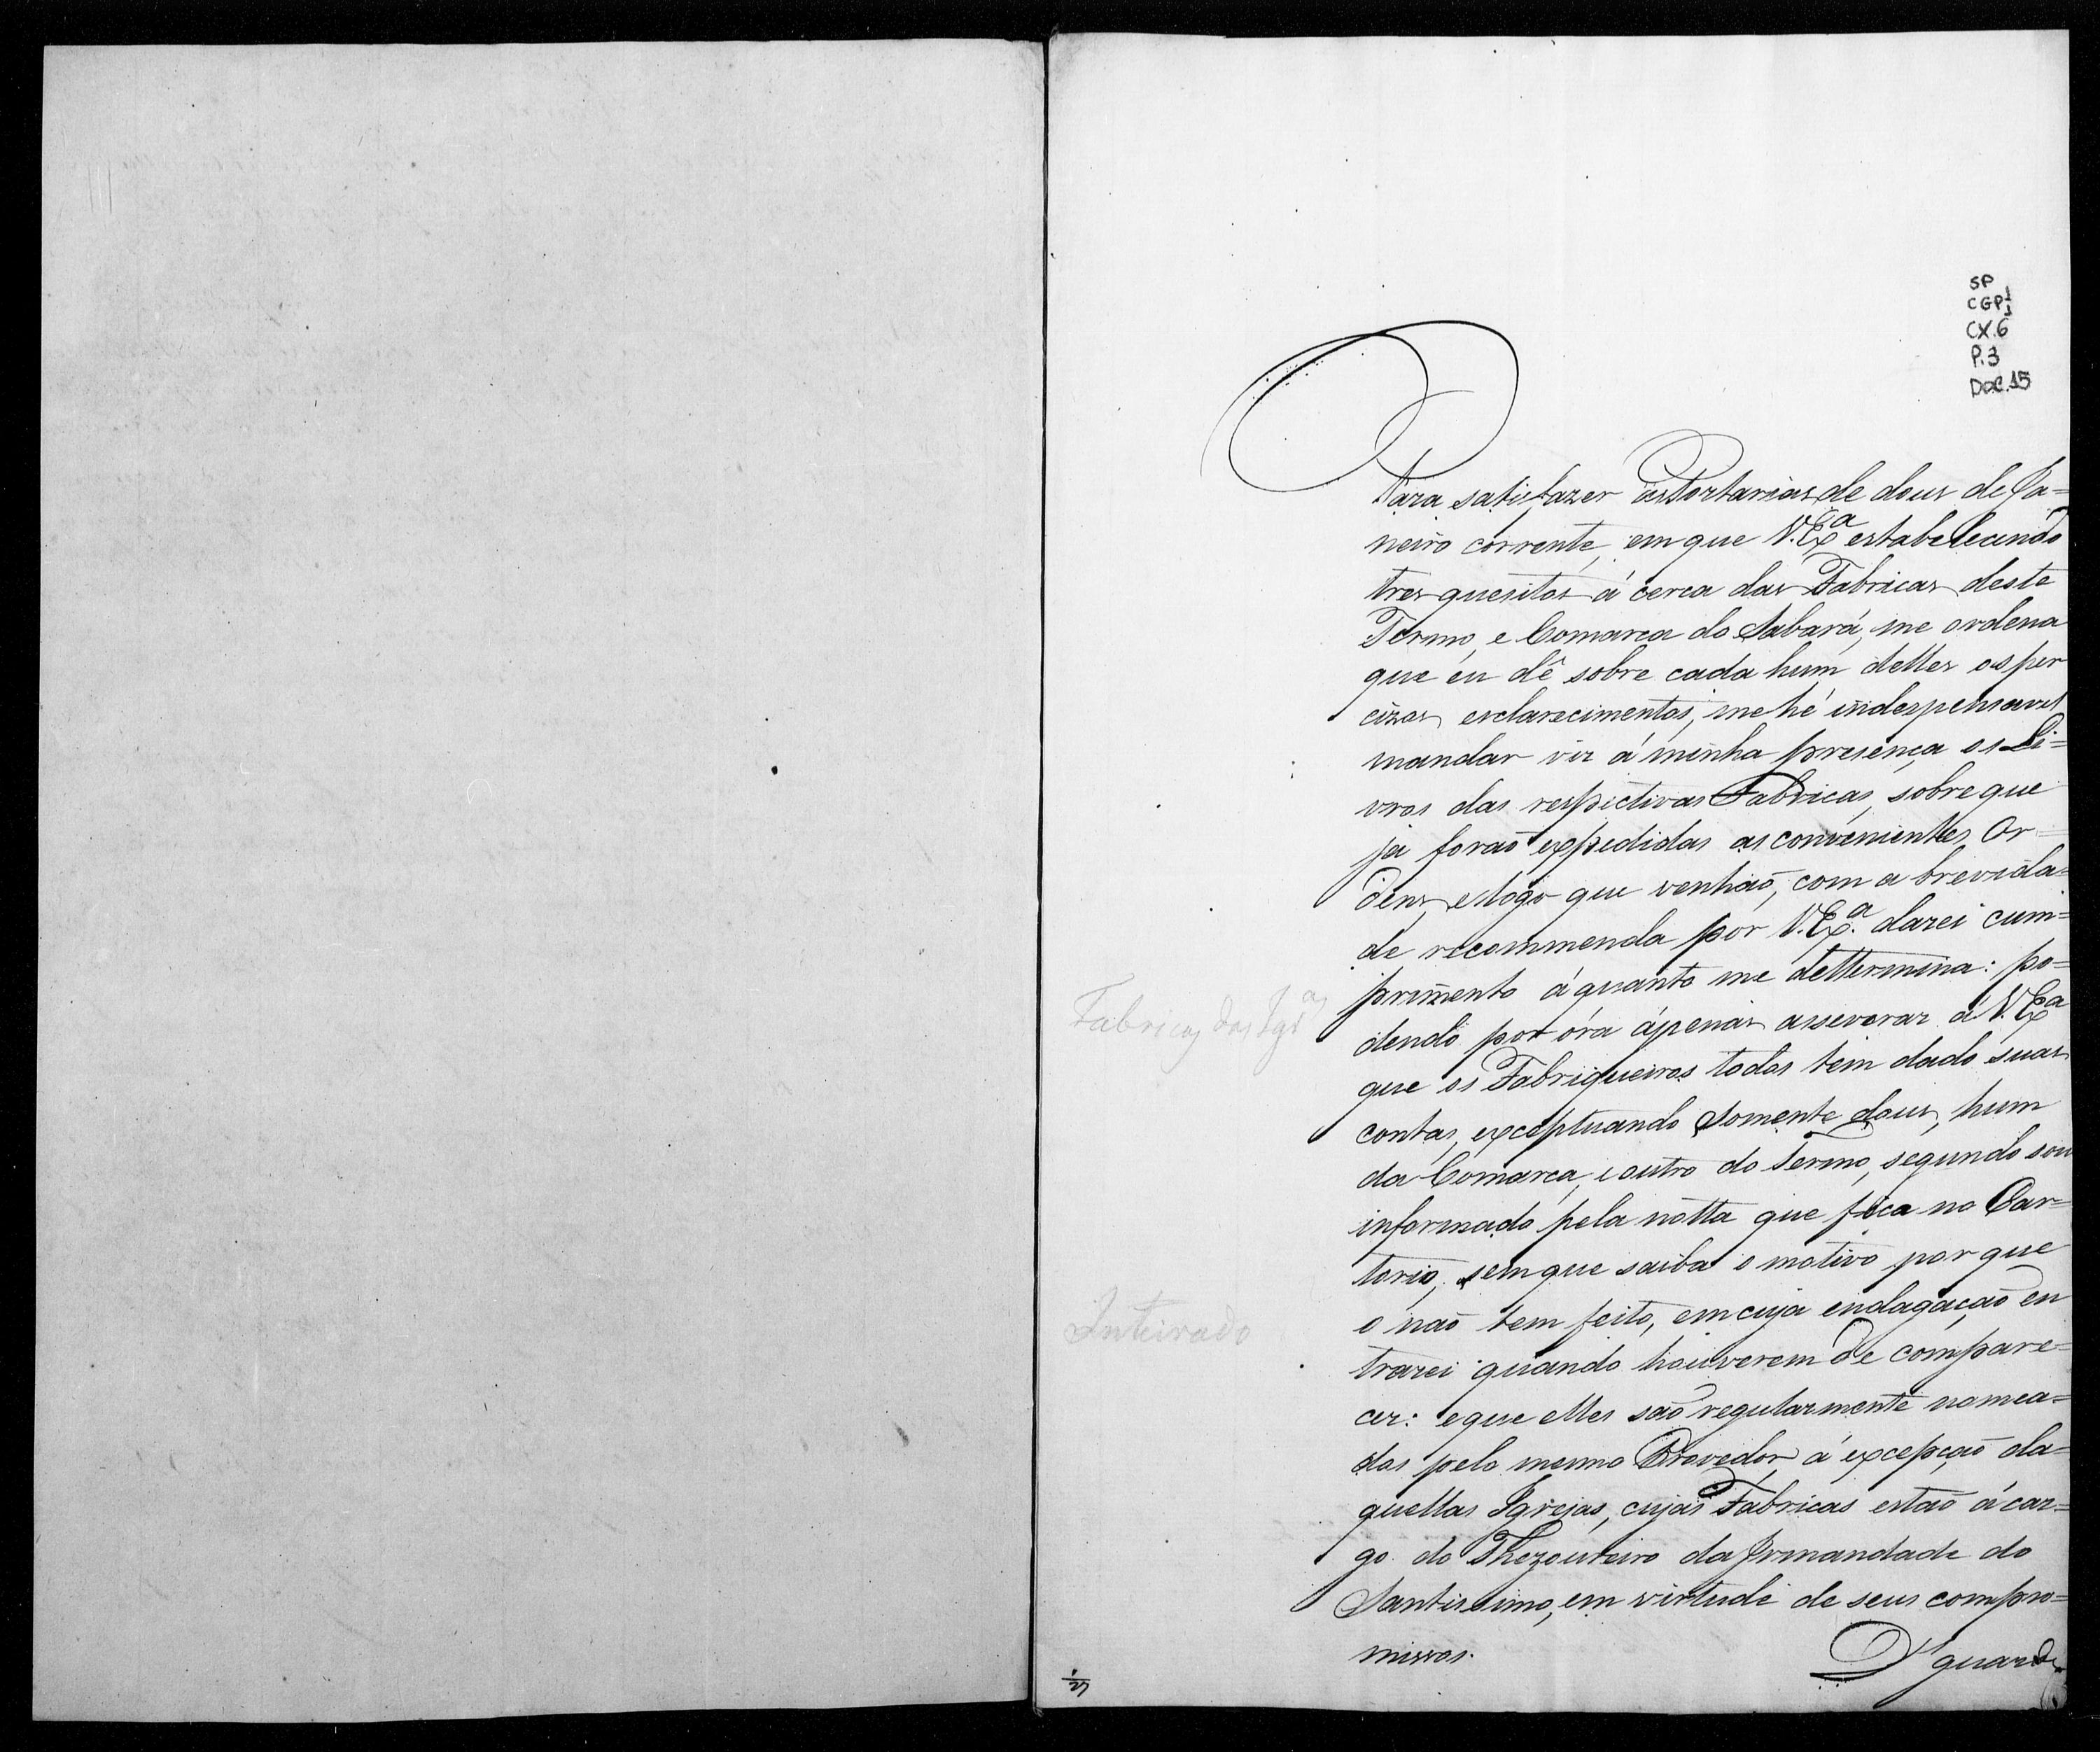 SP
CGP 1/1
CX.6
P.3
DOC.15
Para satisfazer as Portarias de dous de Ja=
neiro corrente, em que V. Ex.ª estabelecendo
tres quesitos á cerca das Fabricas deste
Termo, e Comarca do Sabará, me ordena
que eu dê sobre cada hum delles os per
cizos esclarecimentos, me hé indespensavel
mandar vir á minha presença os Li=
vros das respectivas Fabricas, sobre que
já forão expedidas as convenientes Or=
dens, e logo que venhão, com a brevida=
de recommenda por V. Ex.ª darei cum=
primento á quanto me dettermina: po=
dendo por óra ápenas asseverar á V. Ex.ª
que os Fabriqueiros todos tem dado suas
contas, exceptuando somente dous, hum
da Comarca, e outro do Termo, segundo sou
informado pela notta que fica no Car=
torio, sem que saiba o motivo por que
o não tem feito, em cuja endagação en
trarei quando houverem de compare=
cer: e que elles são regularmente nomea=
dos pelo mesmo Provedor, á excepção da=
quellas Igrejas, cujas Fabricas estão á car=
go do Thezoureiro da Irmandade do
Santissimo, em virtude de seus compro=
missos.
D.s guarde
Fabricas das Igr.as
Inteirado